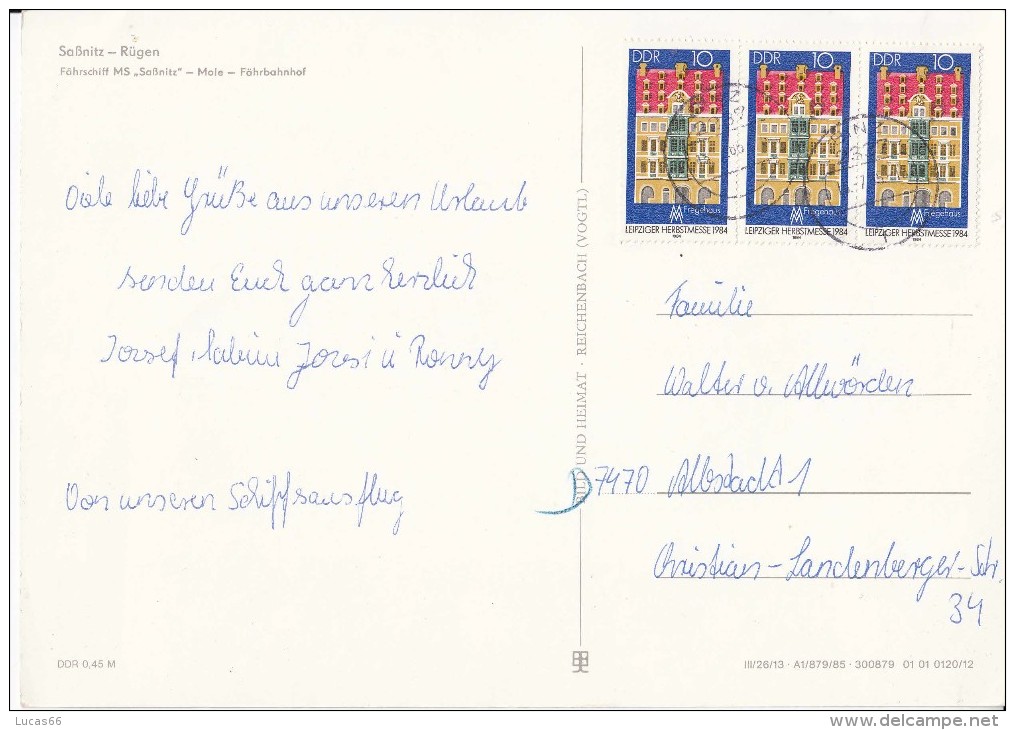 Saßnitz – Rügen
Fährschiff MS „Saßnitz" – Mole – Fährbahnhof
Viele liebe Grüße aus unseren Urlaub
senden Euch ganz herzlich
Jozsef, Sabine Jozsi u Ronny
Von unseren Schiffsausflug
DDR 0,45 M
BILD UND HEIMAT · REICHENBACH (VOGTL)
DDR 10
Fregehaus
LEIPZIGER HERBSTMESSE 1984
1984
DDR 10
Fregehaus
LEIPZIGER HERBSTMESSE 1984
1984
DDR 10
Fregehaus
LEIPZIGER HERBSTMESSE 1984
1984
Familie
Walter v. Allwörden
D 7470 Albstadt 1
Christian-Landenberger-Str.
34
III/26/13 · A1/879/85 · 300879 01 01 0120/12
Lucas66
www.delcampe.net